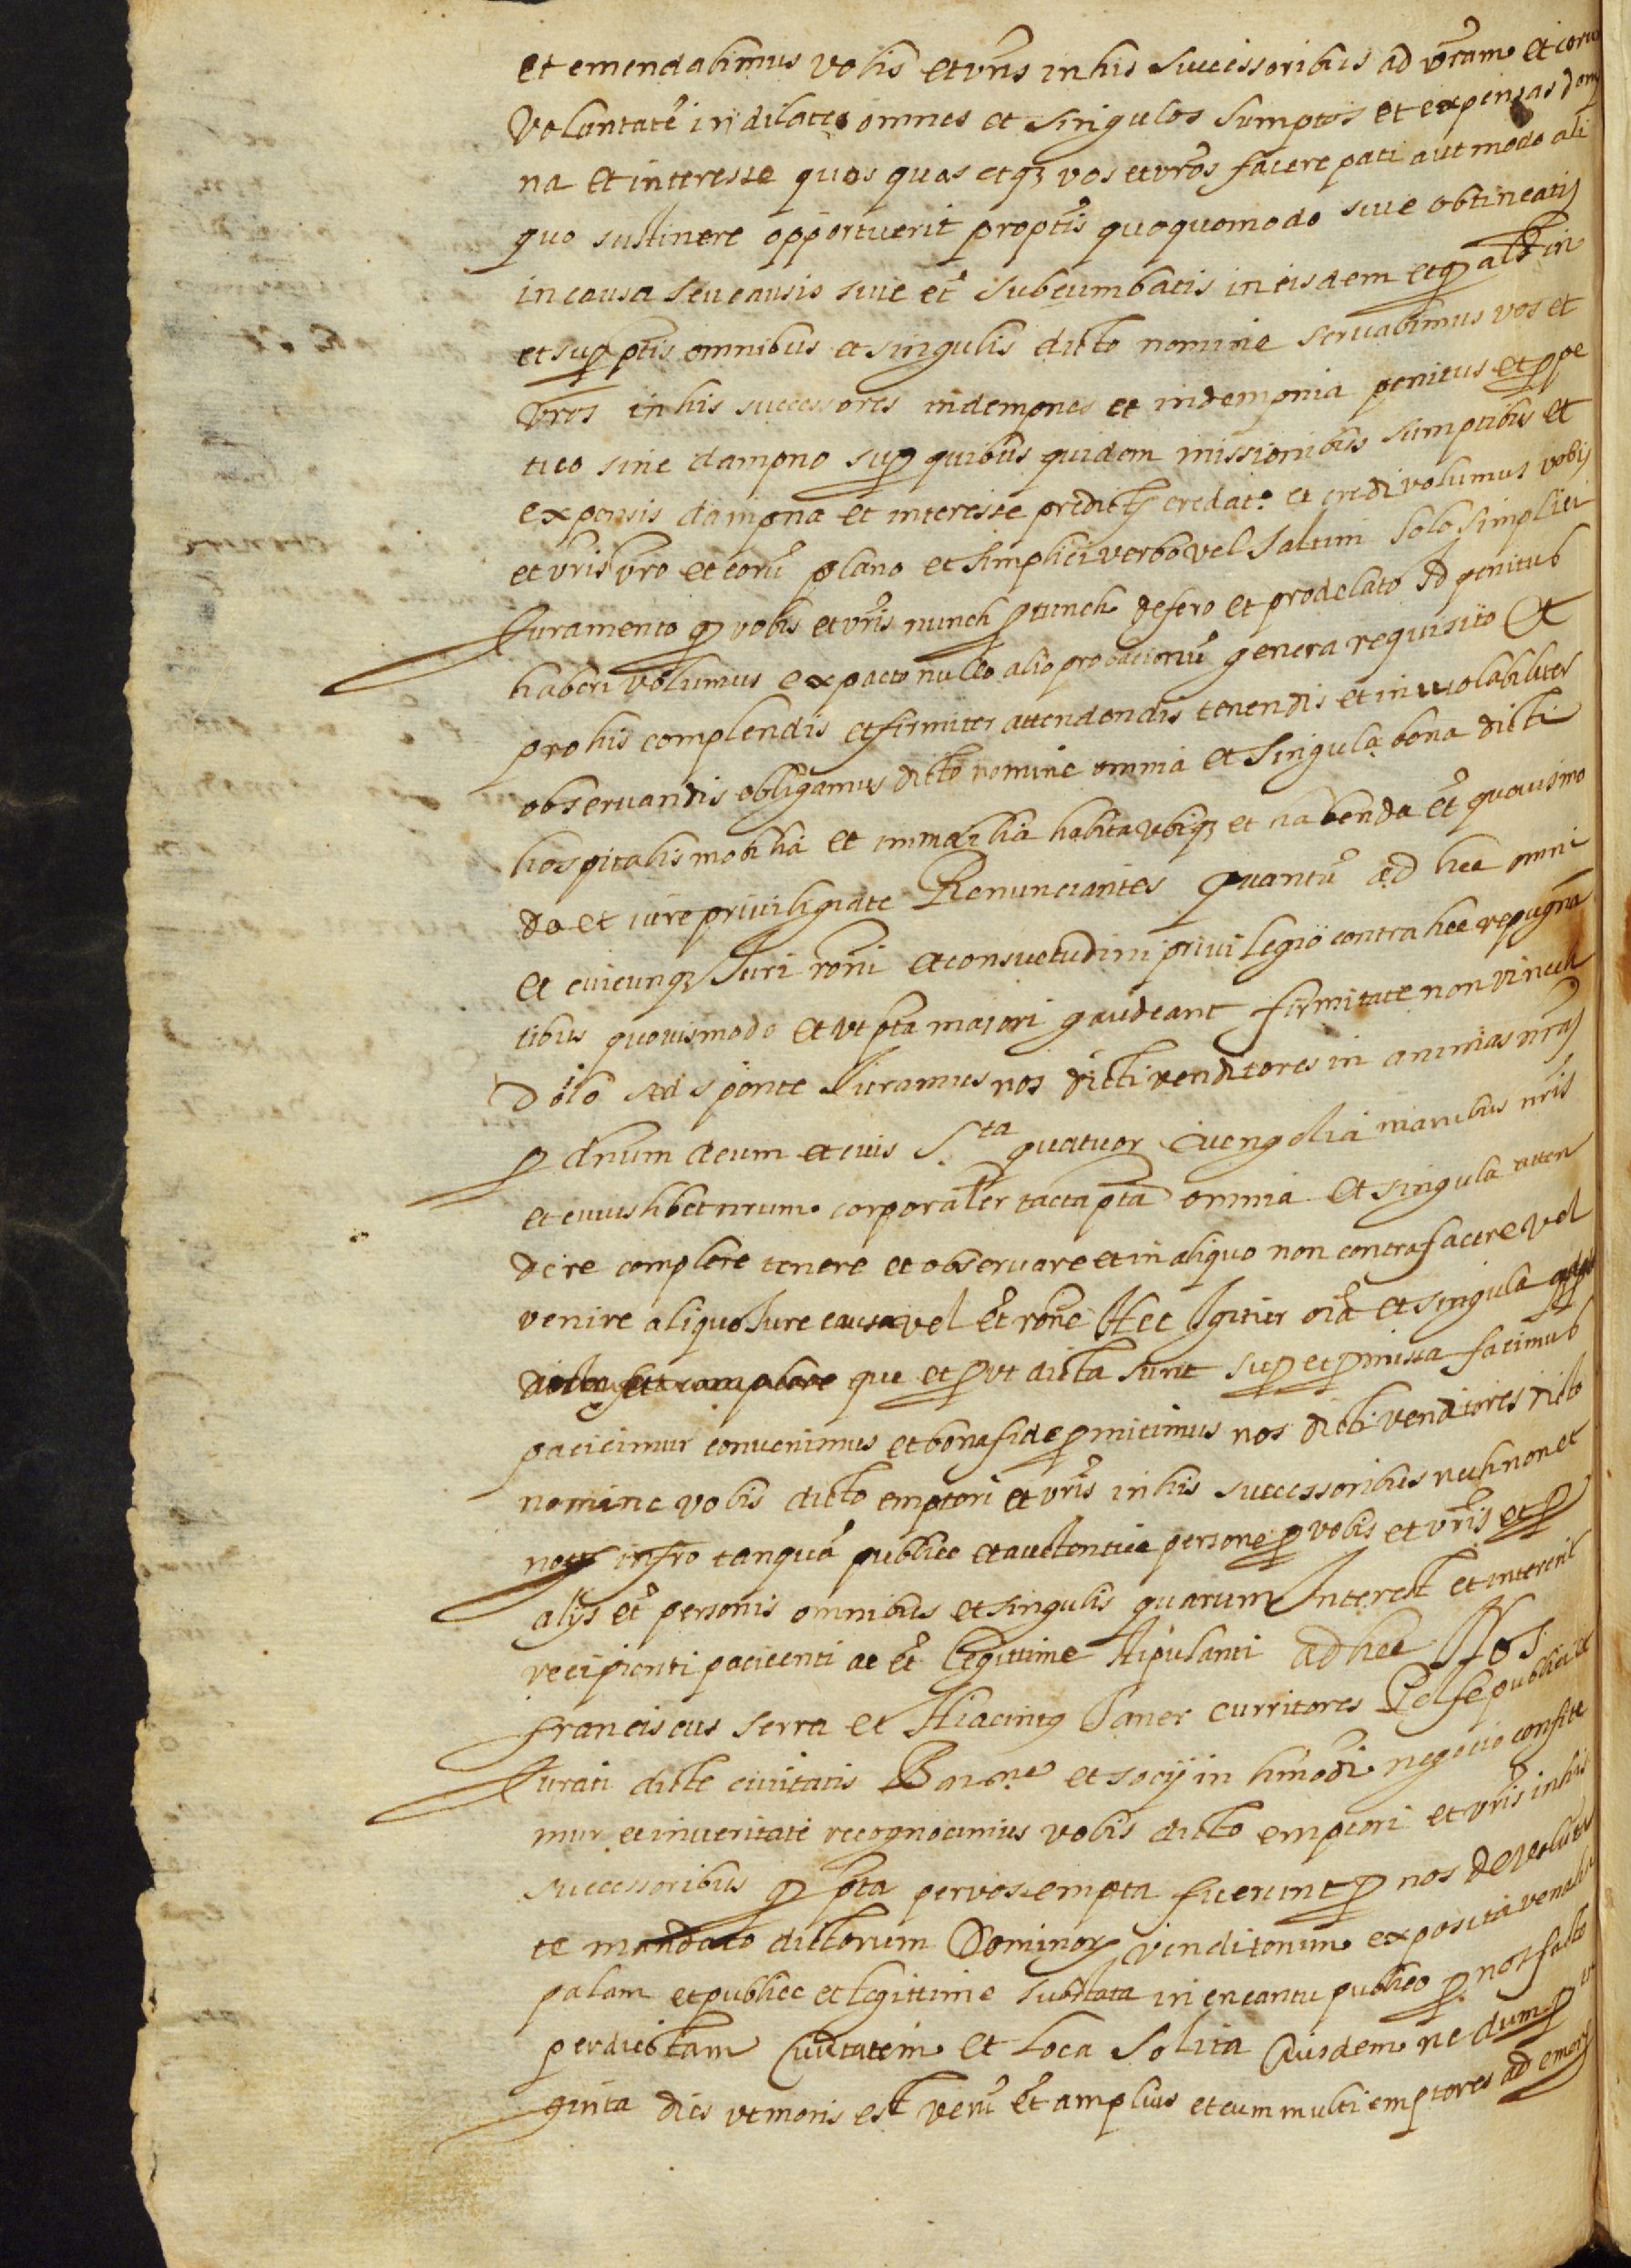 et emendabimus vobis et vris in his successoribus ad vram et eoru
voluntate indilate omnes et singulos sumptos et expensas dam
na et interesse quos quas etq3 vos et vros facere pati aut modo ali
quo sustinere opportuerit proptis quoquomodo sive obtineatis
in causa seu causis sive et subcumbatis in eisdem et q als in
et sup ptis omnibus et singulis dicto nomine servabimus vos et
vros in his successores indempnes et indempnia penitus et ppe
tuo sine dampno sup quibus quidem missionibus sumptibus et
expensis dampna et interesse predictis credat. et credi volumus vobis
et vris vro et eoru plano et simplici verbo vel saltim solo simplici
Juramento q vobis et vris nunch p tunch defero et pro delato Id penitus
haberi volumus ex pacto nullo alio probacionu genera requisito Et
pro his complendis et firmiter attendendis tenendis et inviolabiliter
observandis obligamus dicto nomine omnia et singula bona dicti
hospitalis mobilia et immobilia habita ubiq3 et habenda et quovismo
do et iure priviligiate Renunciantes quantu ad hec omni
et cuicunq3 Juri roni et consuetudini privilegio contra hec repugna
tibus quovismodo et ut pta maiori gaudeant firmitate non vi nech
Dolo sed sponte Juramus nos dicti venditores in animas nras
p dnum deum et eius Sta quatuor Evangelia manibus nris
et cuiuslibet nrum corporaliter tacta pta omnia et singula atten
dere complere tenere et observare et in aliquo non contrafacere vel
venire aliquo Jure causa vel et rone Hec Igitur oia et singula
que et put dicta sunt sup et pmissa facimus
paciscimur convenimus et bona fide pmitimus nos dicti venditores dicto
nomine vobis dicto emptori et vris in his successoribus nech non et
not infro tanqua publice et auctentice persone p vobis et vris et p
alys et personis omnibus et singulis quarum Interest et intererit
recipienti paciscenti ac et legittime stipulanti ad hec Nos
Franciscus Serra et Hiacintq Janer curritores Pelfe publici et
Jurati dicte civitatis Barne et socij in hmodi negocio confite
mur et in veritate recognocimus vobis dicto emptori et vris in his
successoribus q pta per vos empta fuerunt p nos de volunta
te mandato dictorum Dominor venditorum exposita venalia
palam et publice et legittime subastata in encantu publico p nos facto
per dictam Civitatem et Loca Solita Eiusdem ne dum p tri
ginta dies ut moris est veru et amplius et cum multi emptores ad emen